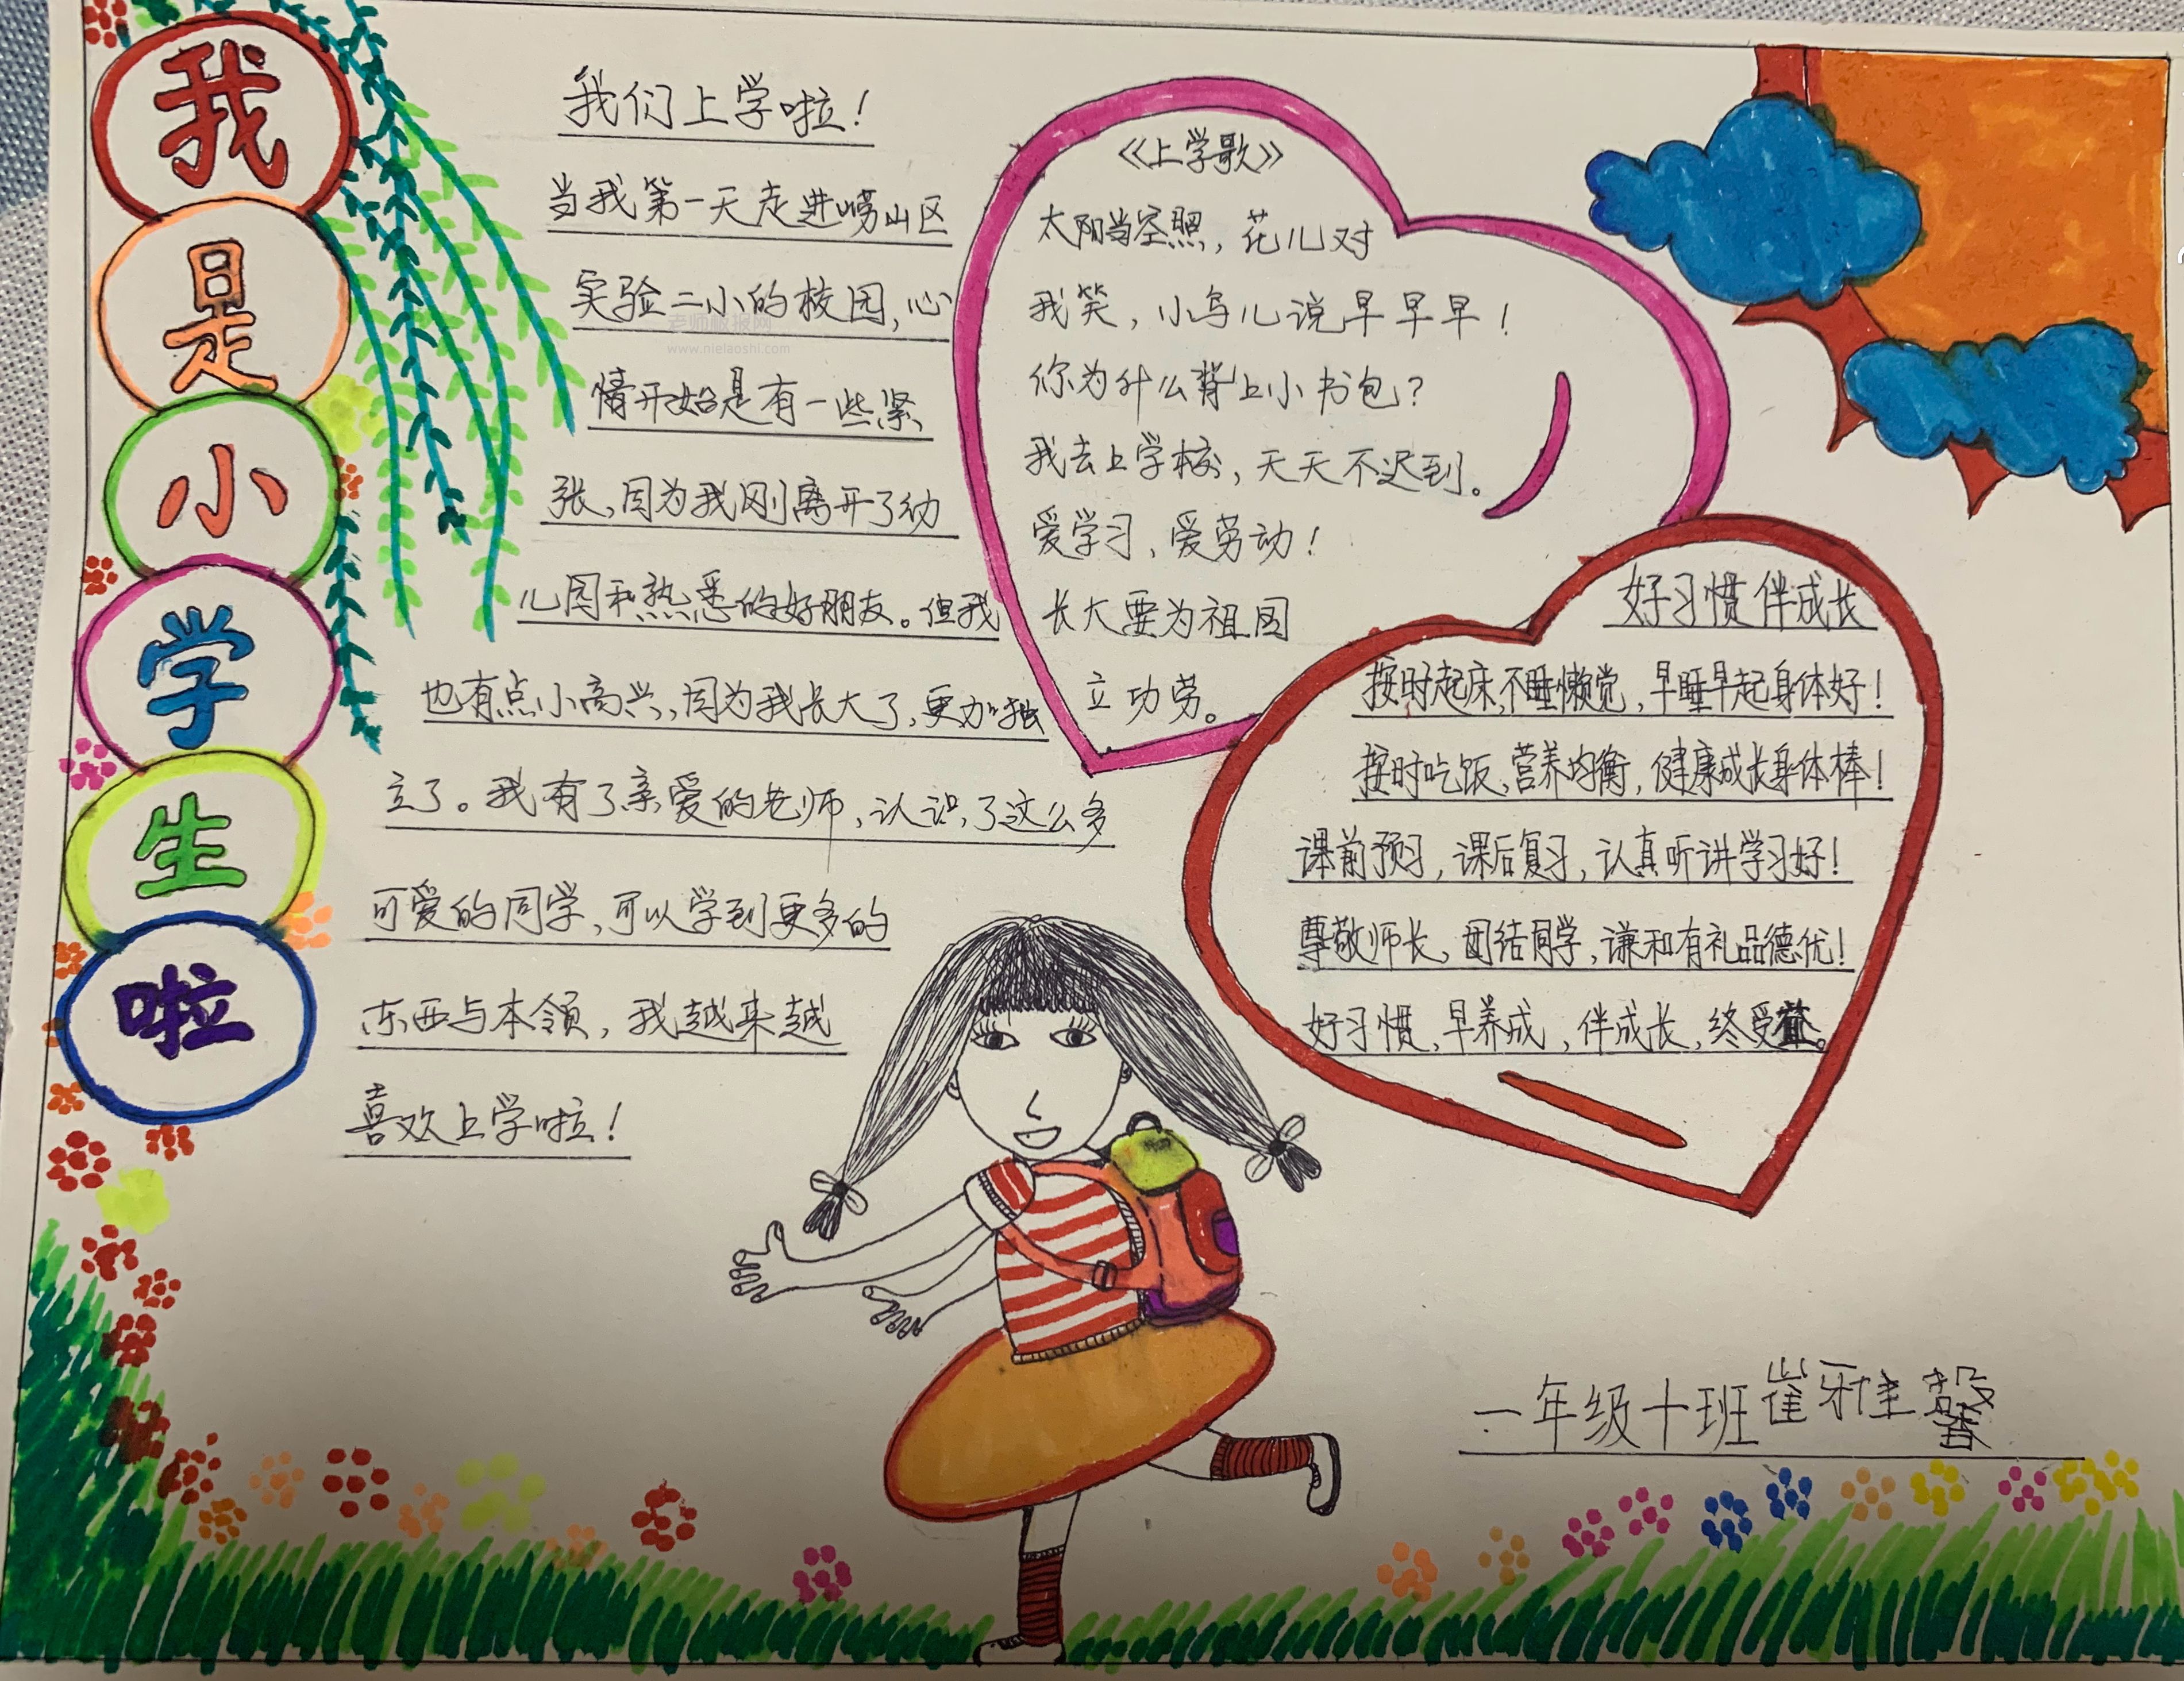 我是小学生啦
我们上学啦！
当我第一天走进崂山区
实验二小的校园，心
情开始是有一些紧
张，因为我刚离开了幼
儿园和熟悉的好朋友。但我
也有点小高兴，因为我长大了，更加独
立了。我有了亲爱的老师，认识了这么多
可爱的同学，可以学到更多的
东西与本领，我越来越
喜欢上学啦！
老师板报网
www.nielaoshi.com
《上学歌》
太阳当空照，花儿对
我笑，小鸟儿说早早早！
你为什么背上小书包？
我去上学校，天天不迟到。
爱学习，爱劳动！
长大要为祖国
立功劳。
好习惯伴成长
按时起床，不睡懒觉，早睡早起身体好！
按时吃饭，营养均衡，健康成长身体棒！
课前预习，课后复习，认真听讲学习好！
尊敬师长，团结同学，谦和有礼品德优！
好习惯，早养成，伴成长，终受益。
一年级十班崔雅馨